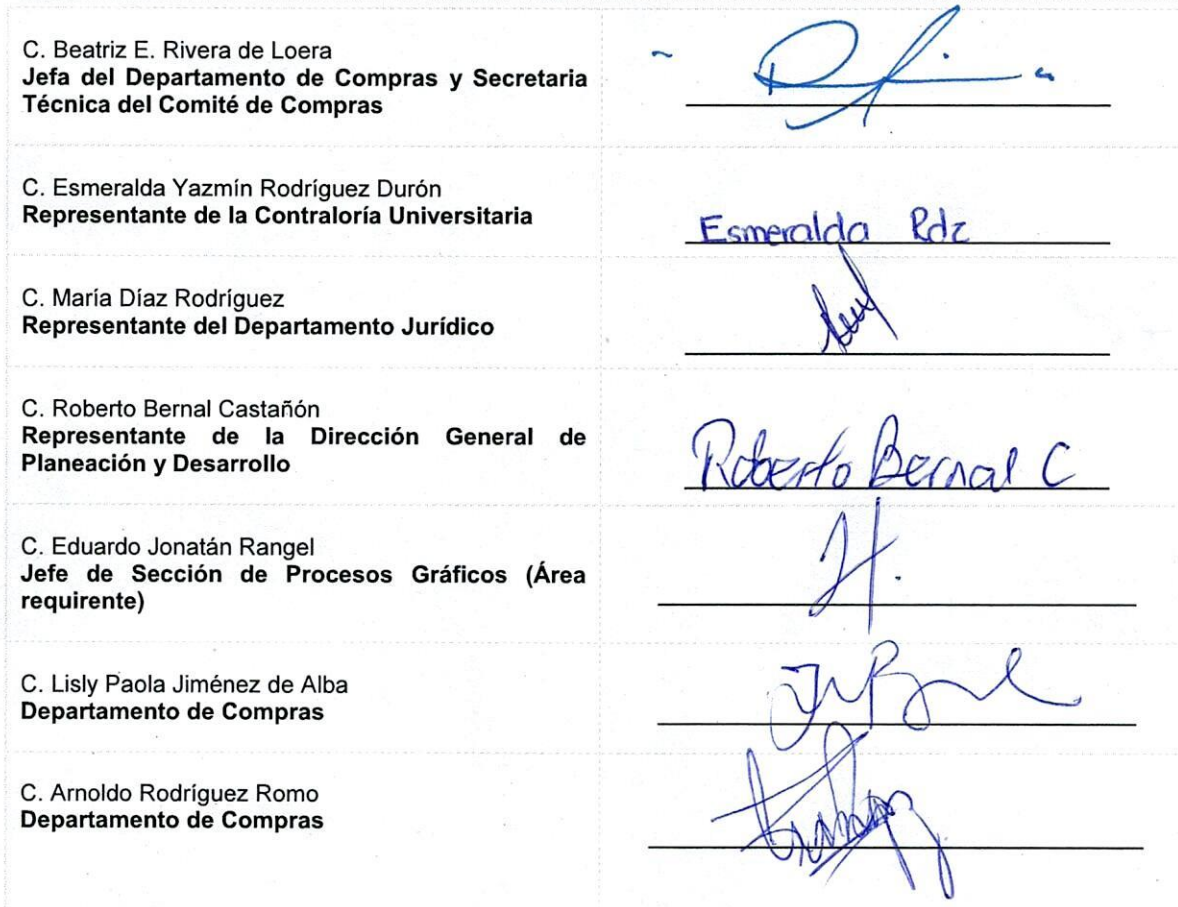 C. Beatriz E. Rivera de Loera
Jefa del Departamento de Compras y Secretaria
Técnica del Comité de Compras
C. Esmeralda Yazmín Rodríguez Durón
Representante de la Contraloría Universitaria
Esmeralda Rdz
C. María Díaz Rodríguez
Representante del Departamento Jurídico
C. Roberto Bernal Castañón
Representante de la Dirección General de
Planeación y Desarrollo
Roberto Bernal C
C. Eduardo Jonatán Rangel
Jefe de Sección de Procesos Gráficos (Área
requirente)
C. Lisly Paola Jiménez de Alba
Departamento de Compras
C. Arnoldo Rodríguez Romo
Departamento de Compras